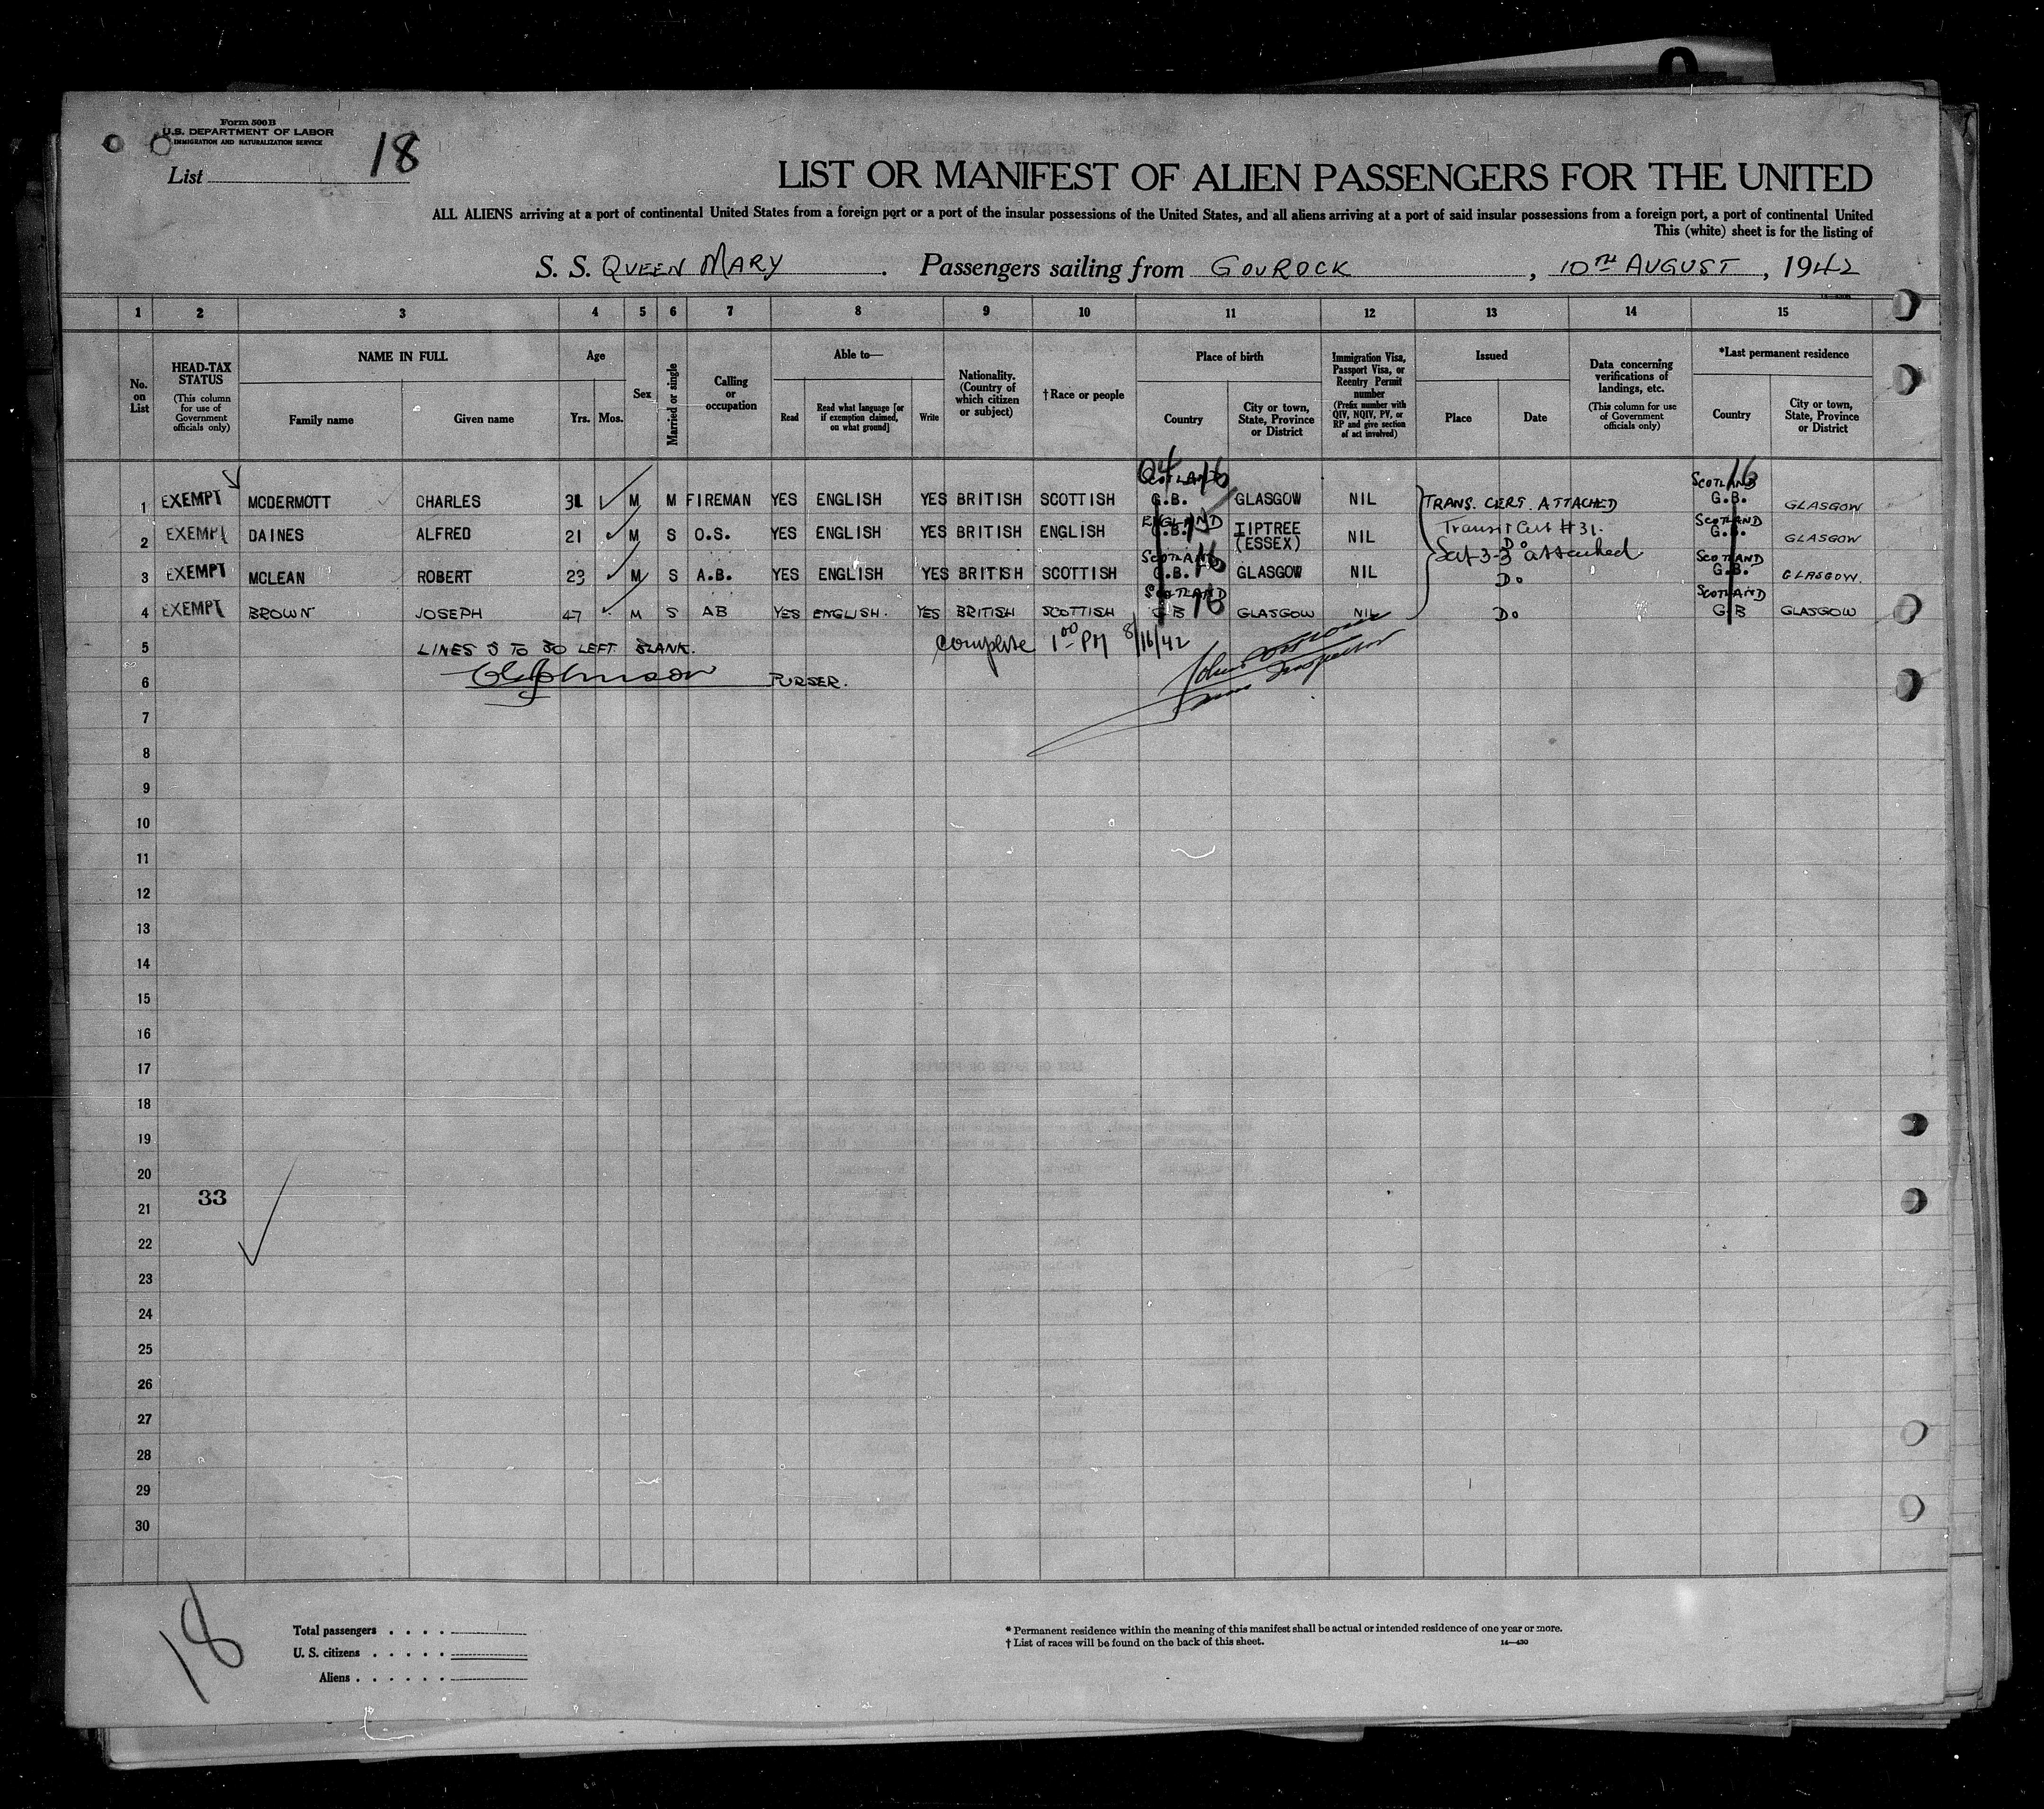 Form 500B
U.S. DEPARTMENT OF LABOR
IMMIGRATION AND NATURALIZATION SERVICE
List 18
LIST OR MANIFEST OF ALIEN PASSENGERS FOR THE UNITED
ALL ALIENS arriving at a port of continental United States from a foreign port or a port of the insular possessions of the United States, and all aliens arriving at a port of said insular possessions from a foreign port, a port of continental United
This (white) sheet is for the listing of
S. S. QUEEN MARY . Passengers sailing from GOUROCK , 10TH AUGUST , 1942
1 2 3 4 5 6 7 8 9 10 11 12 13 14 15
No. on List
HEAD-TAX STATUS (This column for use of Government officials only)
NAME IN FULL
Family name
Given name
Age
Yrs. Mos.
Sex
Married or single
Calling or occupation
Able to—
Read
Read what language [or if exemption claimed, on what ground]
Write
Nationality. (Country of which citizen or subject)
†Race or people
Place of birth
Country
City or town, State, Province or District
Immigration Visa, Passport Visa, or Reentry Permit number (Prefix number with QIV, NQIV, PV, or RP and give section of act involved)
Issued
Place
Date
Data concerning verifications of landings, etc. (This column for use of Government officials only)
*Last permanent residence
Country
City or town, State, Province or District
1 EXEMPT MCDERMOTT CHARLES 31 M M FIREMAN YES ENGLISH YES BRITISH SCOTTISH SCOTLAND G.B. 16 GLASGOW NIL TRANS. CERT. ATTACHED SCOTLAND G.B. 16 GLASGOW
2 EXEMPT DAINES ALFRED 21 M S O.S. YES ENGLISH YES BRITISH ENGLISH ENGLAND G.B. TIPTREE (ESSEX) NIL Transit Cert #31. Do SCOTLAND G.B. GLASGOW
Sec 3-3 attached
3 EXEMPT MCLEAN ROBERT 23 M S A.B. YES ENGLISH YES BRITISH SCOTTISH SCOTLAND G.B. 16 GLASGOW NIL Do SCOTLAND G.B. GLASGOW.
4 EXEMPT BROWN JOSEPH 47 M S AB YES ENGLISH. YES BRITISH SCOTTISH SCOTLAND GB 16 GLASGOW NIL Do SCOTLAND GB GLASGOW
5 LINES 5 TO 30 LEFT BLANK. Complete 1 00 PM 8/16/42
6 PURSER. Inspector
7
8
9
10
11
12
13
14
15
16
17
18
19
20
33
21
22
23
24
25
26
27
28
29
30
18
Total passengers . . . .
U. S. citizens . . . . .
Aliens . . . . . .
* Permanent residence within the meaning of this manifest shall be actual or intended residence of one year or more.
† List of races will be found on the back of this sheet.
14—430